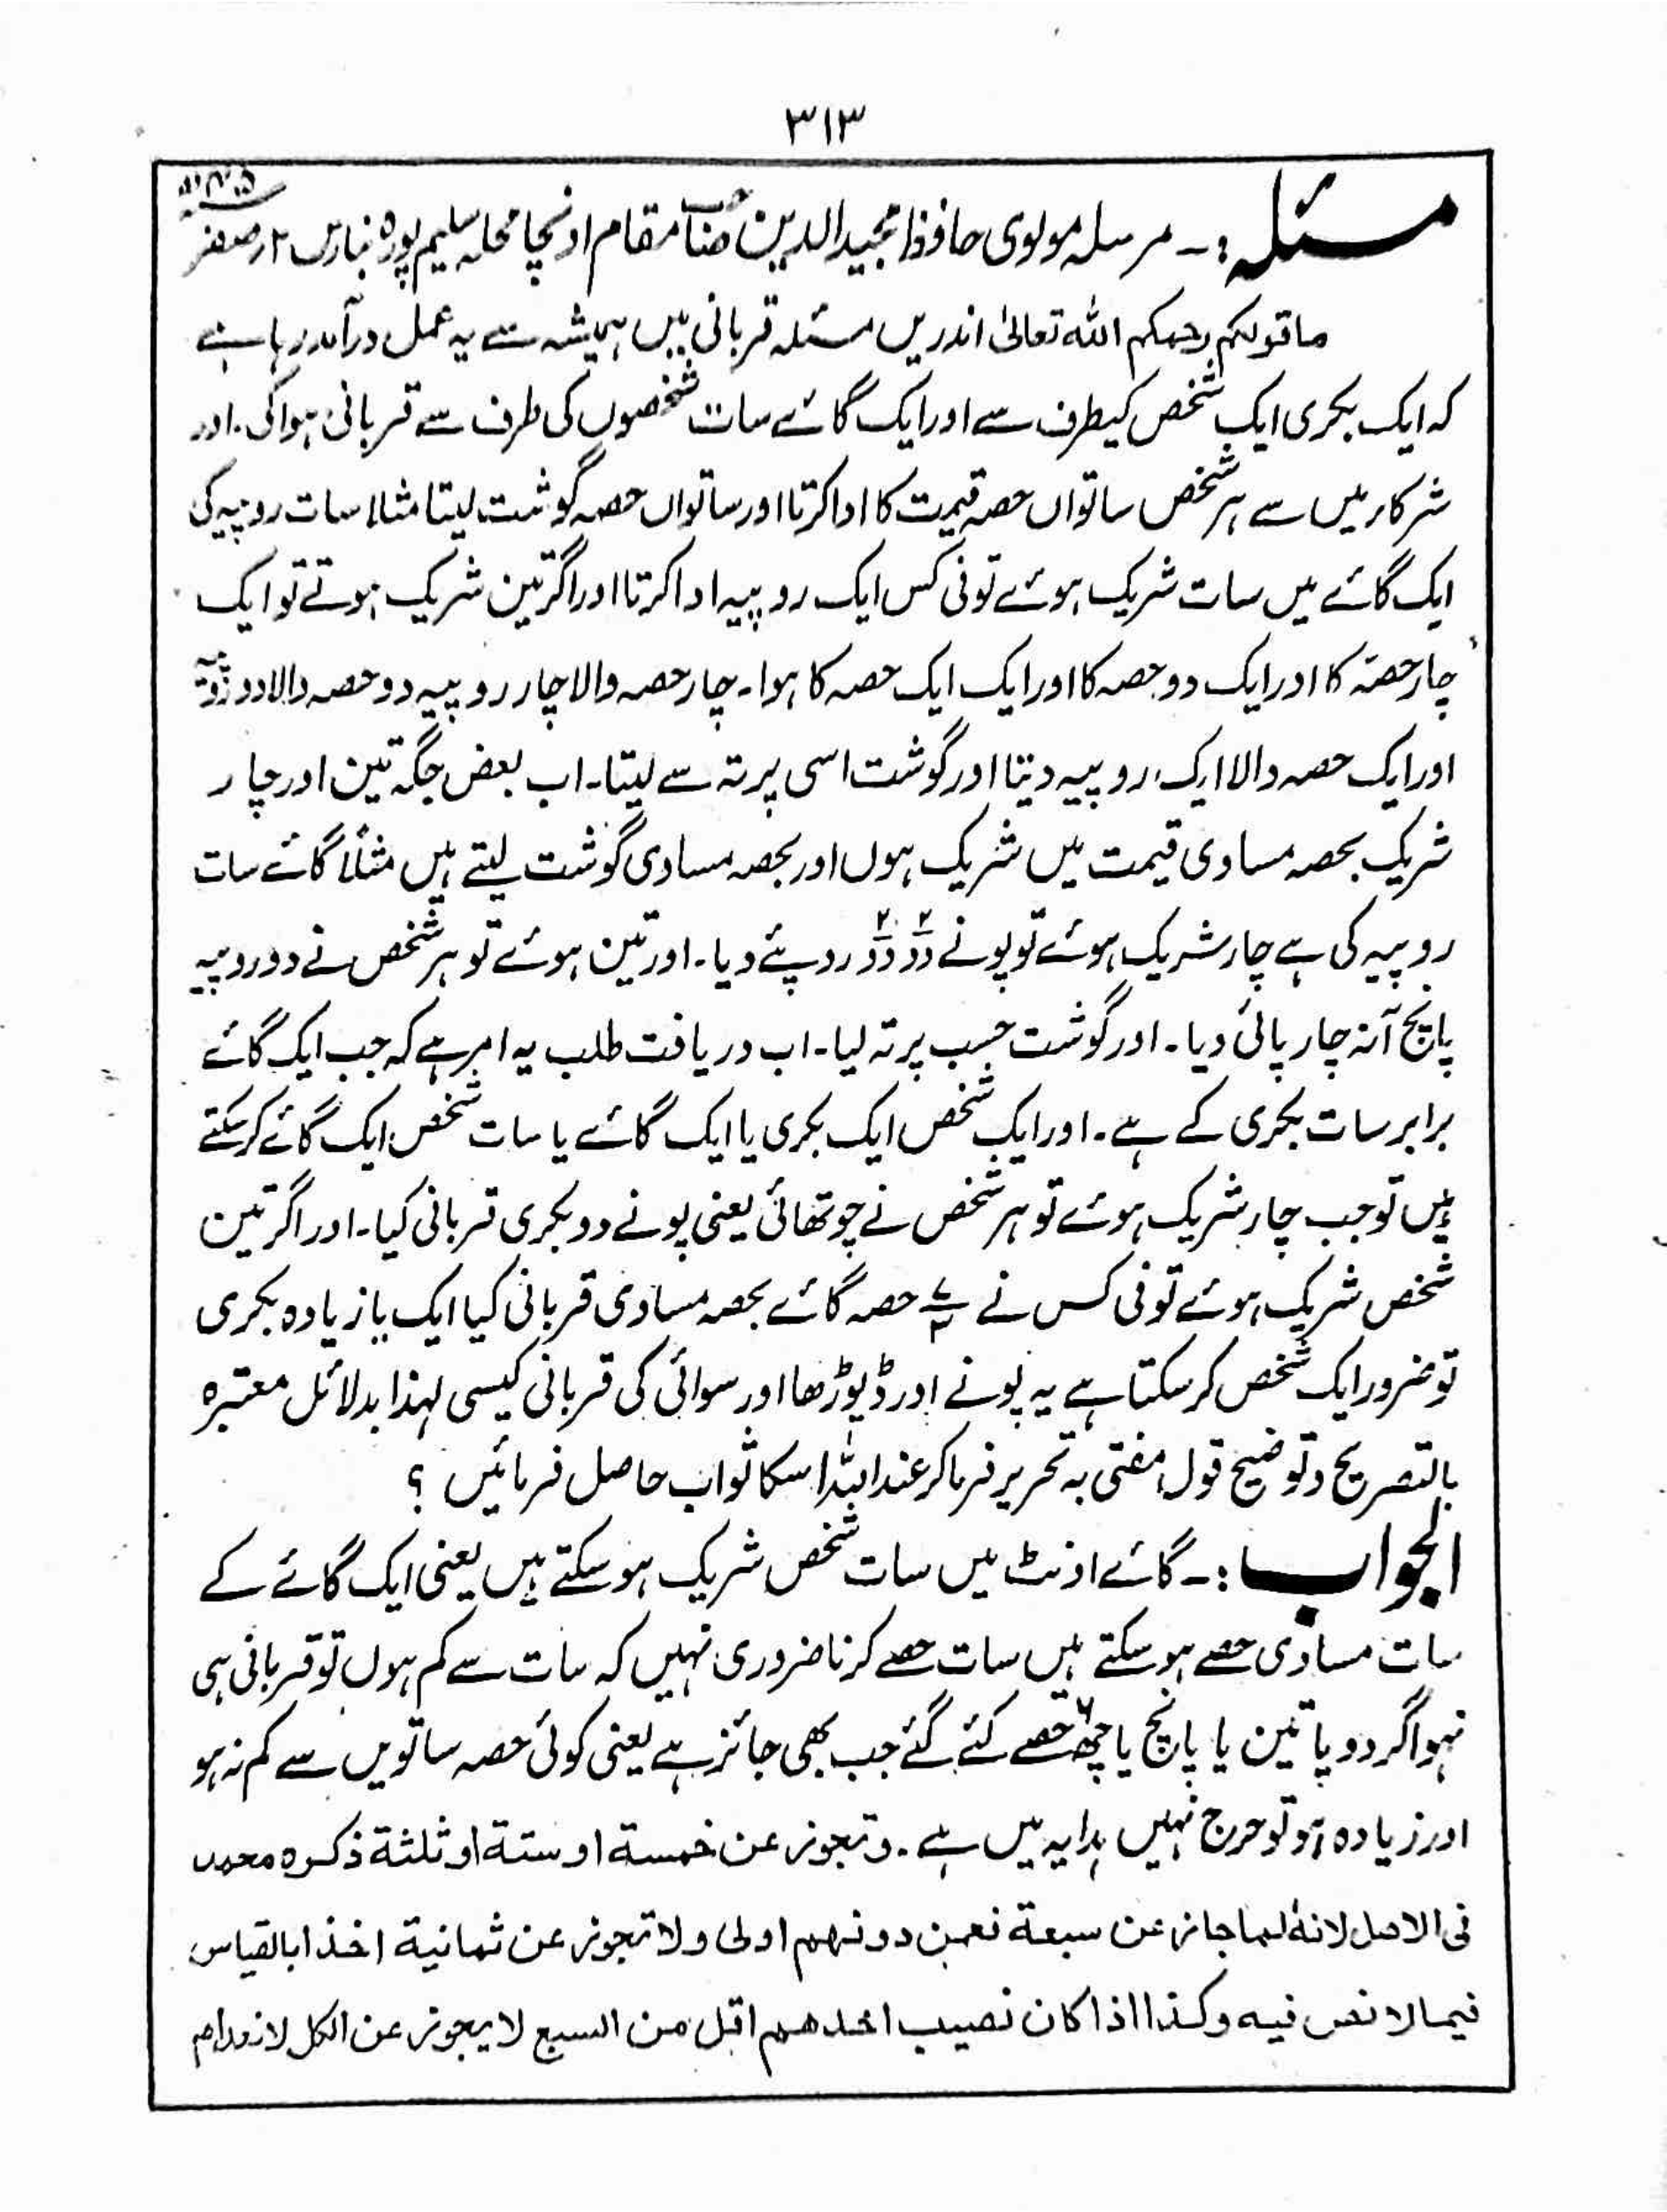 ۳۱۳
مسئلہ :۔ مرسلہ مولوی حافظ مجیدالدین صاحب مقام اونچا محلہ سلیم پورہ بنارس ۲؍صفر
ماقولکم رحمکم اللہ تعالیٰ اندریں مسئلہ قربانی میں ہمیشہ سے یہ عمل درآمد رہا ہے
کہ ایک بکری ایک شخص کیطرف سے اور ایک گائے سات شخصوں کی طرف سے قربانی ہوا کی۔ اور
شرکاء میں سے ہر شخص ساتواں حصہ قیمت کا ادا کرتا اور ساتواں حصہ گوشت لیتا مثلاً سات روپیہ کی
ایک گائے میں سات شریک ہوئے تو فی کس ایک روپیہ ادا کرتا اور اگر تین شریک ہوتے تو ایک
چار حصہ کا اور ایک دو حصہ کا اور ایک ایک حصہ کا ہوا۔ چار حصہ والا چار روپیہ دو حصہ والا دو روپیہ
اور ایک حصہ والا ایک روپیہ دیتا اور گوشت اسی پرتہ سے لیتا۔ اب بعض جگہ تین اور چار
شریک بحصہ مساوی قیمت میں شریک ہوں اور بحصہ مساوی گوشت لیتے ہیں مثلاً گائے سات
روپیہ کی ہے چار شریک ہوئے تو پونے دو دو روپئے دیا۔ اور تین ہوئے تو ہر شخص نے دو روپیہ
پانچ آنہ چار پائی دیا۔ اور گوشت حسب پرتہ لیا۔ اب دریافت طلب یہ امر ہے کہ جب ایک گائے
برابر سات بکری کے ہے۔ اور ایک شخص ایک بکری یا ایک گائے یا سات شخص ایک گائے کرسکتے
ہیں تو جب چار شریک ہوئے تو ہر شخص نے چوتھائی یعنی پونے دو بکری قربانی کیا۔ اور اگر تین
شخص شریک ہوئے تو فی کس نے ۷/۳ حصہ گائے بحصہ مساوی قربانی کیا ایک یا زیادہ بکری
تو ضرور ایک شخص کرسکتا ہے یہ پونے اور ڈیوڑھا اور سوائی کی قربانی کیسی لہذا بدلائل معتبرہ
بالتصریح وتوضیح قول مفتی بہ تحریر فرما کر عنداللہ اسکا ثواب حاصل فرمائیں ؟
الجواب :۔ گائے اونٹ میں سات شخص شریک ہوسکتے ہیں یعنی ایک گائے کے
سات مساوی حصے ہوسکتے ہیں سات حصے کرنا ضروری نہیں کہ سات سے کم ہوں تو قربانی ہی
نہو اگر دو یا تین یا پانچ یا چھ حصے کئے گئے جب بھی جائز ہے یعنی کوئی حصہ ساتویں سے کم نہ ہو
اور زیادہ ہو تو حرج نہیں ہدایہ میں ہے۔ وتجوز عن خمسة او ستة او ثلثة ذکرہ محمد
فی الاصل لانہ لما جاز عن سبعة فعمن دونهم اولی ولا تجوز عن ثمانیة اخذا بالقیاس
فیما لا نص فیہ وکذا اذا کان نصیب احدهم اقل من السبع لا یجوز عن الکل لانعدام